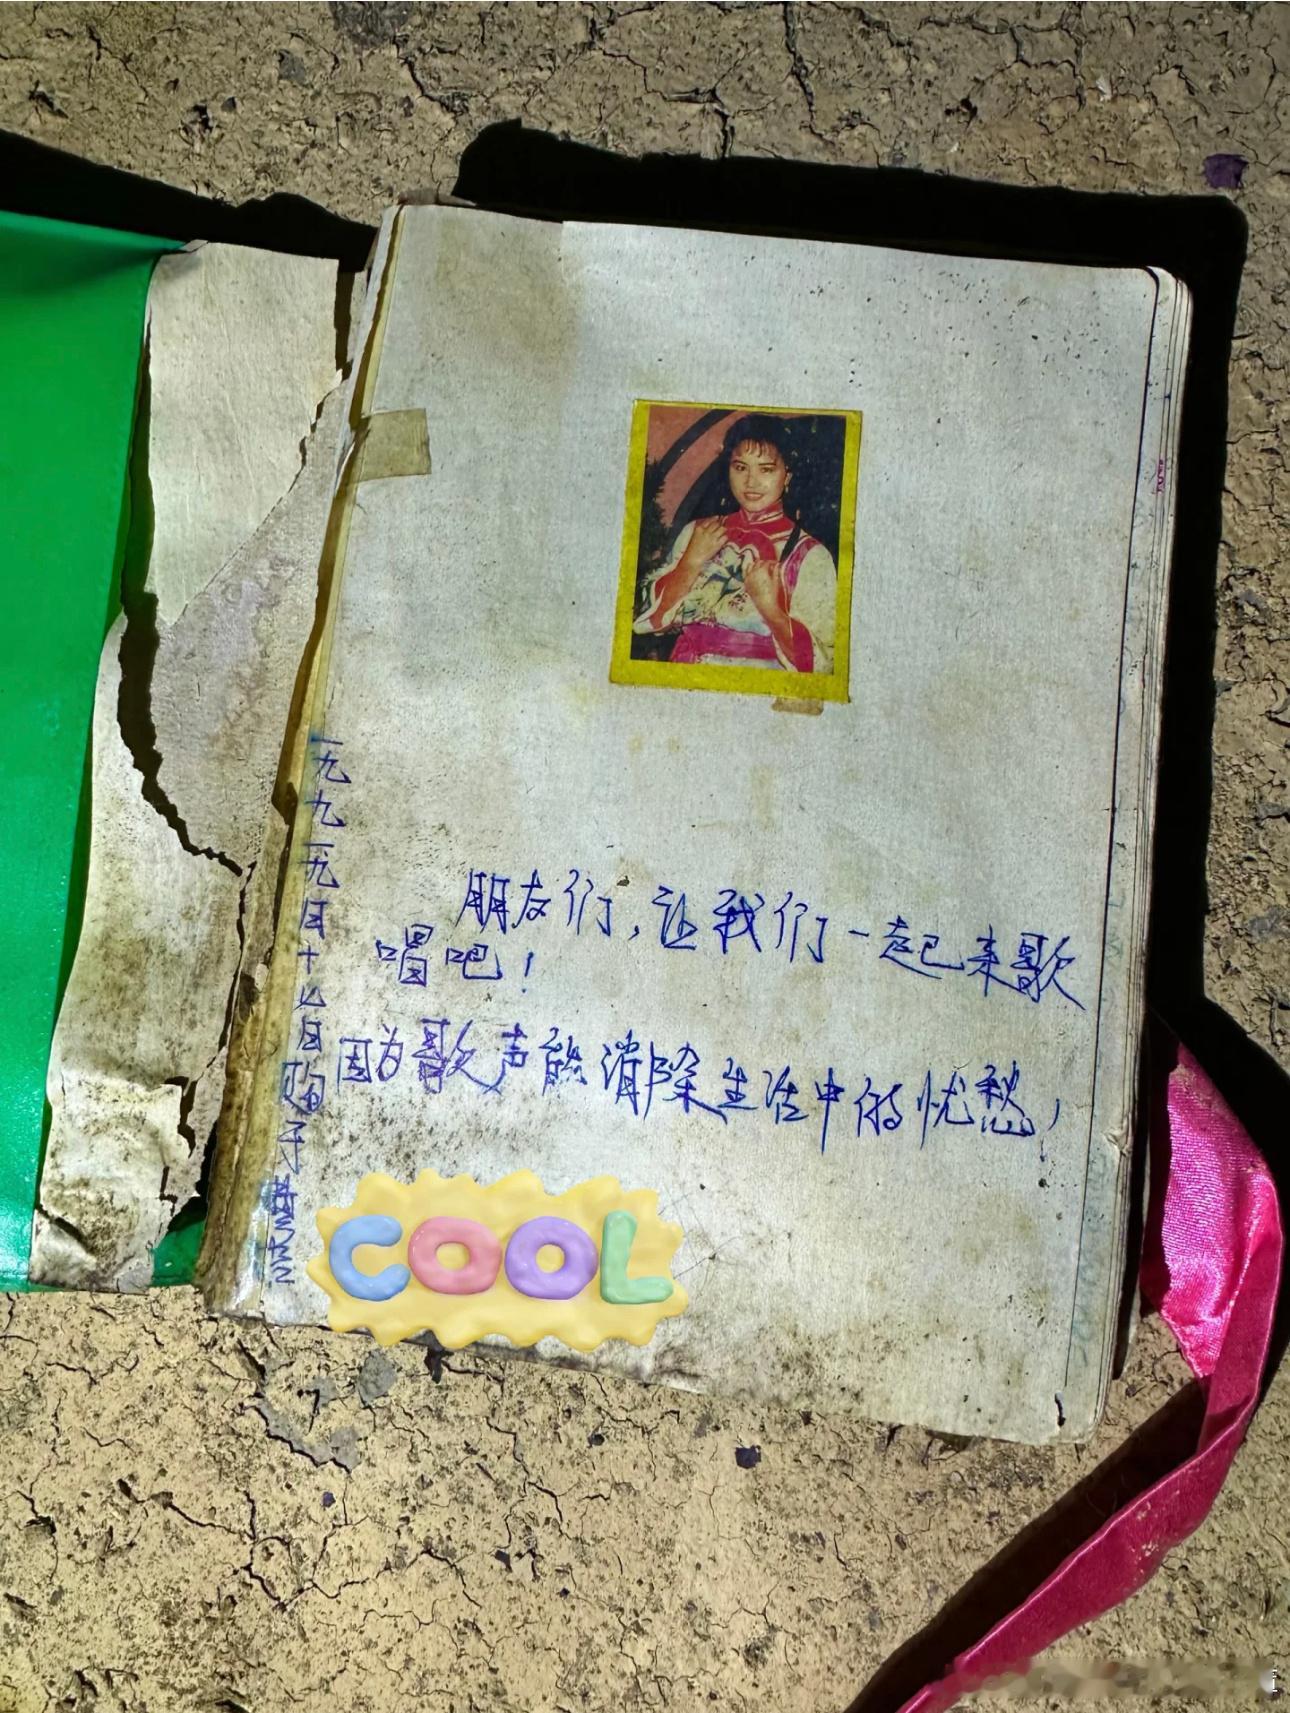 朋友们，让我们一起来歌
唱吧！
因为歌声能消除生活中的忧愁！
一九九一年九月十七日购于
COOL